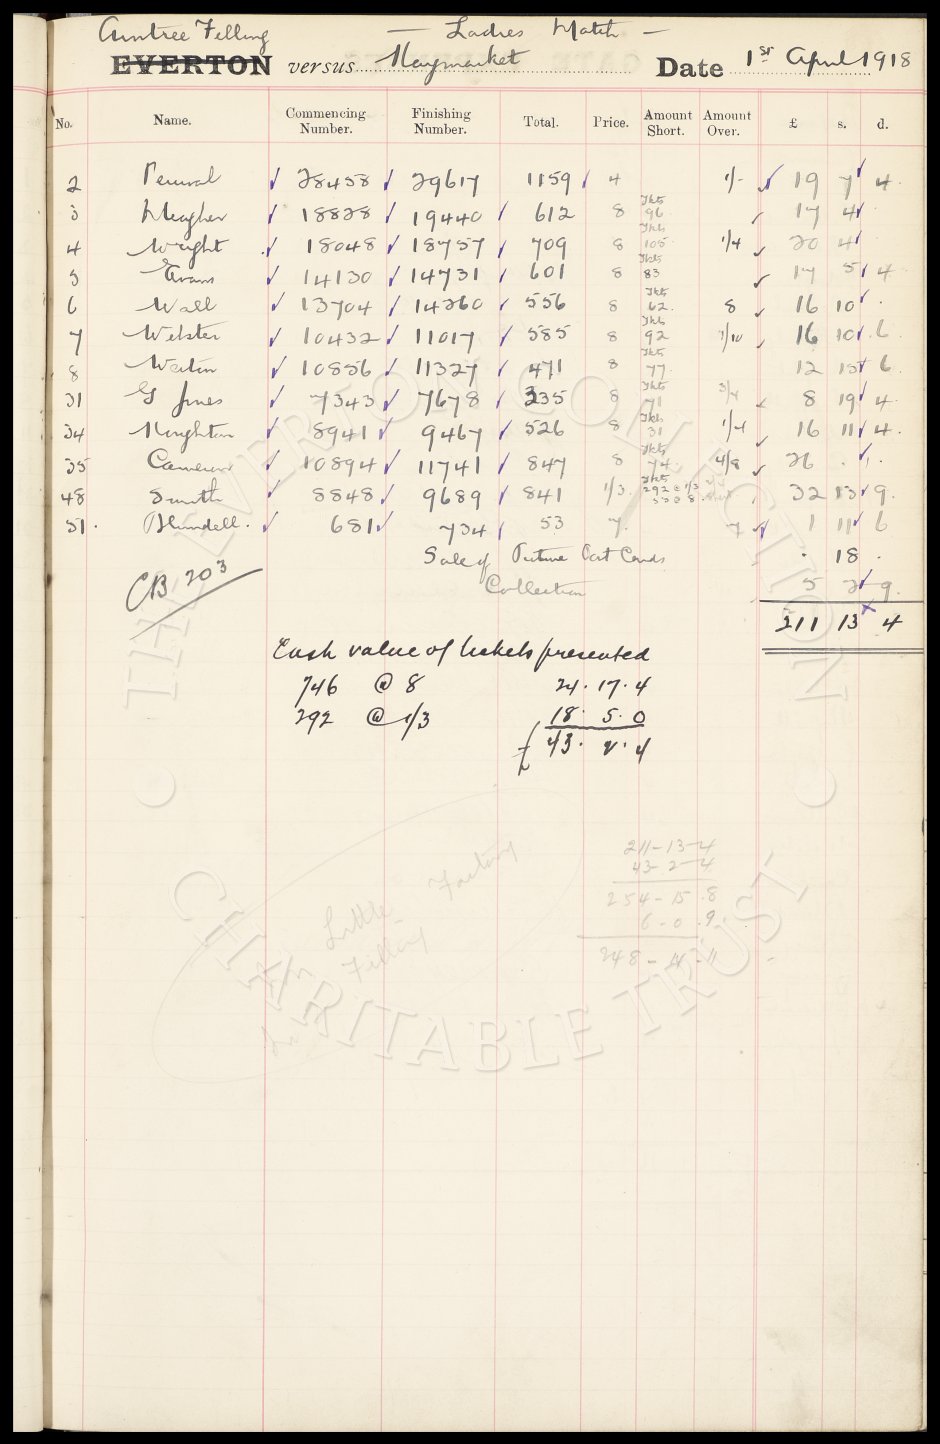 Aintree Filling — Ladies Match —
EVERTON versus Haymarket Date 1st April 1918
No. Name. Commencing Number. Finishing Number. Total. Price. Amount Short. Amount Over. £ s. d.
2 Percival 28458 29617 1159 4 1/- 19 7 4
3 Meagher 18828 19440 612 8 Tkts 96 17 4 .
4 Wright 18048 18757 709 8 Tkts 105 1/4 20 4
5 Evans 14130 14731 601 8 Tkts 83 17 5 4
6 Wall 13704 14260 556 8 Tkts 62. 8 16 10 .
7 Webster 10432 11017 585 8 Tkts 92 1/10 16 10 . 6
8 Weston 10856 11327 471 8 Tkts 77 12 15 6
31 G Jones 7343 7678 335 8 Tkts 71 3/4 8 19 4
34 Houghton 8941 9467 526 8 Tkts 31 1/4 16 11 4
35 Cameron 10894 11741 847 8 Tkts 74 4/8 26 . .
48 Smith 8848 9689 841 1/3 Tkts 292 @ 1/3 32 13 9
51 . Blundell . 681 734 53 7. 7 1 11 6
Sale of Picture Post Cards . 18 .
Collection 5 2 9
CB 203
211 13 4
Cash value of tickets presented
746 @ 8 24 . 17 . 4
292 @ 1/3 18 . 5 . 0
£ 43 . 2 . 4
211-13-4
43-2-4
254-15.8
6-0.9
248-14-11
Little Factory
Filling
THE EVERTON COLLECTION
CHARITABLE TRUST